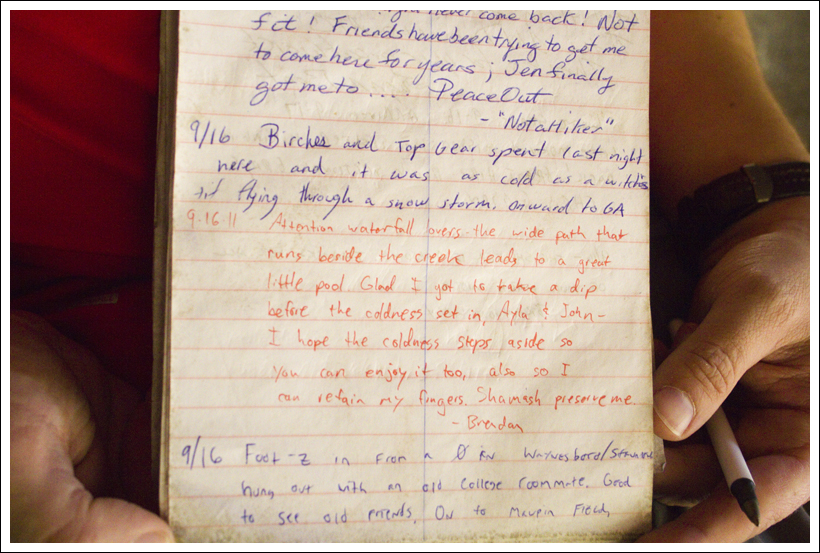 never come back! Not
fct! Friends have been trying to get me
to come here for years; Jen finally
got me to .... Peace Out
- "Not a Hiker"
9/16 Birches and Top Gear spent last night
here and it was as cold as a witch's
tit flying through a snow storm. Onward to GA
9.16.11 Attention waterfall lovers - the wide path that
runs beside the creek leads to a great
little pool. Glad I got to take a dip
before the coldness set in, Ayla & John -
I hope the coldness steps aside so
you can enjoy it too, also so I
can retain my fingers. Shamash preserve me.
- Brendan
9/16 Foot-Z in from a Ø in Waynesboro/Staunton
hung out with an old College roommate. Good
to see old friends. On to Maupin Field,